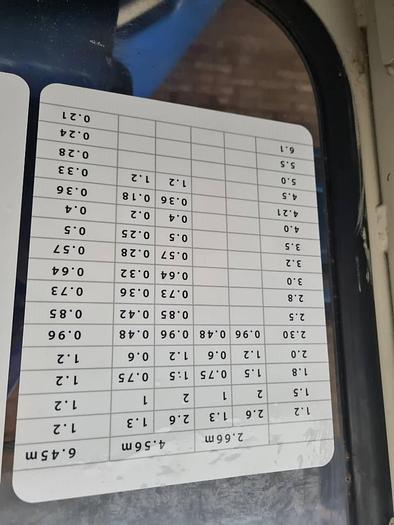 2.66m 4.56m 6.45m
1.2 2.6 1.3 2.6 1.3 1.2
1.5 2 1 2 1 1.2
1.8 1.5 0.75 1.5 0.75 1.2
2.0 1.2 0.6 1.2 0.6 1.2
2.30 0.96 0.48 0.96 0.48 0.96
2.5 0.85 0.42 0.85
2.8 0.73 0.36 0.73
3.0 0.64 0.32 0.64
3.2 0.57 0.28 0.57
3.5 0.5 0.25 0.5
4.0 0.4 0.2 0.4
4.21 0.36 0.18 0.36
4.5 1.2 1.2 0.33
5.0 0.28
5.5 0.24
6.1 0.21